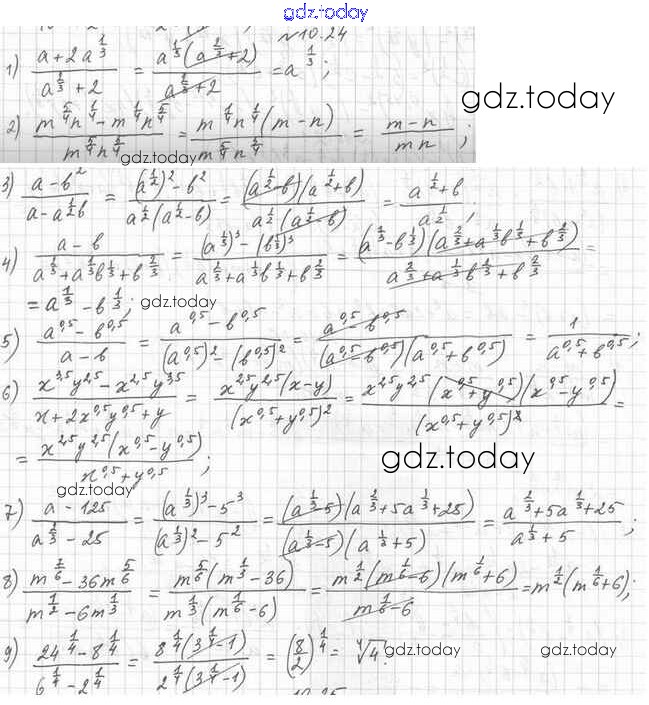 gdz.today
№10.24
1) (a + 2a^{1/3})/(a^{2/3} + 2) = (a^{1/3}(a^{2/3} + 2))/(a^{2/3} + 2) = a^{1/3};
gdz.today
2) (m^{5/4}n^{1/4} - m^{1/4}n^{5/4})/(m^{5/4}n^{5/4}) = (m^{1/4}n^{1/4}(m - n))/(m^{5/4}n^{5/4}) = (m - n)/(mn);
gdz.today
3) (a - b^2)/(a - a^{1/2}b) = ((a^{1/2})^2 - b^2)/(a^{1/2}(a^{1/2} - b)) = ((a^{1/2} - b)(a^{1/2} + b))/(a^{1/2}(a^{1/2} - b)) = (a^{1/2} + b)/(a^{1/2});
4) (a - b)/(a^{2/3} + a^{1/3}b^{1/3} + b^{2/3}) = ((a^{1/3})^3 - (b^{1/3})^3)/(a^{2/3} + a^{1/3}b^{1/3} + b^{2/3}) = ((a^{1/3} - b^{1/3})(a^{2/3} + a^{1/3}b^{1/3} + b^{2/3}))/(a^{2/3} + a^{1/3}b^{1/3} + b^{2/3}) =
= a^{1/3} - b^{1/3}; gdz.today
5) (a^{0,5} - b^{0,5})/(a - b) = (a^{0,5} - b^{0,5})/((a^{0,5})^2 - (b^{0,5})^2) = (a^{0,5} - b^{0,5})/((a^{0,5} - b^{0,5})(a^{0,5} + b^{0,5})) = 1/(a^{0,5} + b^{0,5});
6) (x^{3,5}y^{2,5} - x^{2,5}y^{3,5})/(x + 2x^{0,5}y^{0,5} + y) = (x^{2,5}y^{2,5}(x - y))/((x^{0,5} + y^{0,5})^2) = (x^{2,5}y^{2,5}(x^{0,5} + y^{0,5})(x^{0,5} - y^{0,5}))/((x^{0,5} + y^{0,5})^2) =
= (x^{2,5}y^{2,5}(x^{0,5} - y^{0,5}))/(x^{0,5} + y^{0,5});
gdz.today
gdz.today
7) (a - 125)/(a^{2/3} - 25) = ((a^{1/3})^3 - 5^3)/((a^{1/3})^2 - 5^2) = ((a^{1/3} - 5)(a^{2/3} + 5a^{1/3} + 25))/((a^{1/3} - 5)(a^{1/3} + 5)) = (a^{2/3} + 5a^{1/3} + 25)/(a^{1/3} + 5);
8) (m^{7/6} - 36m^{5/6})/(m^{1/2} - 6m^{1/3}) = (m^{5/6}(m^{1/3} - 36))/(m^{1/3}(m^{1/6} - 6)) = (m^{1/2}(m^{1/6} - 6)(m^{1/6} + 6))/(m^{1/6} - 6) = m^{1/2}(m^{1/6} + 6);
9) (24^{1/4} - 8^{1/4})/(6^{1/4} - 2^{1/4}) = (8^{1/4}(3^{1/4} - 1))/(2^{1/4}(3^{1/4} - 1)) = (8/2)^{1/4} = ⁴√4.
gdz.today
gdz.today